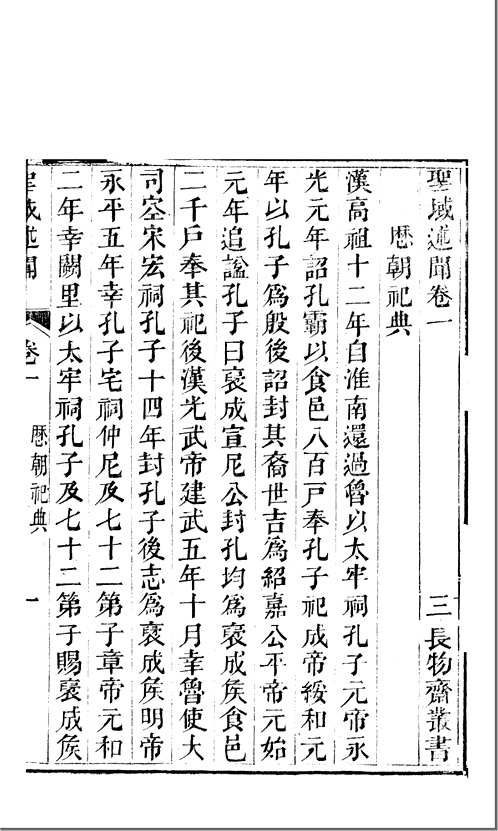 聖域述聞卷一 三長物齋叢書
厯朝祀典
漢高祖十二年自淮南還過魯以太牢祠孔子元帝永
光元年詔孔霸以食邑八百戸奉孔子祀成帝綏和元
年以孔子爲殷後詔封其裔世吉爲紹嘉公平帝元始
元年追諡孔子曰襃成宣尼公封孔均爲襃成矦食邑
二千戸奉其祀後漢光武帝建武五年十月幸魯使大
司空宋宏祠孔子十四年封孔子後志爲襃成矦明帝
永平五年幸孔子宅祠仲尼及七十二第子章帝元和
二年幸闕里以太牢祠孔子及七十二第子賜襃成矦
聖域述聞 卷一 厯朝祀典 一